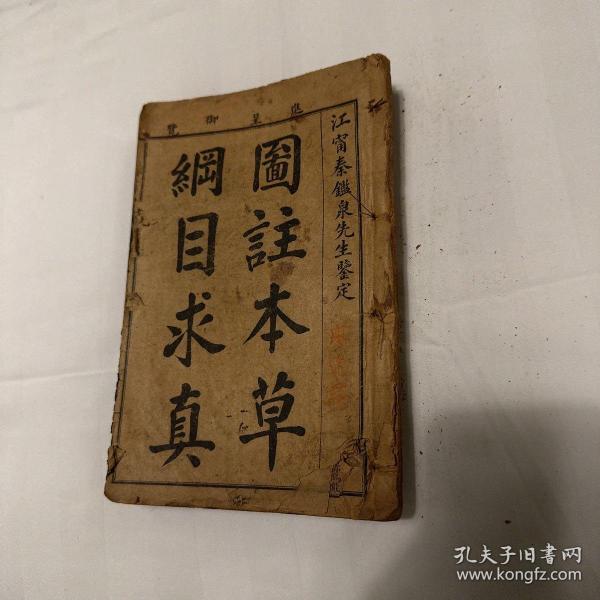 進呈御覽
江甯秦鑑泉先生鑒定
圖註本草
綱目求真
孔夫子旧书网
www.kongfz.com